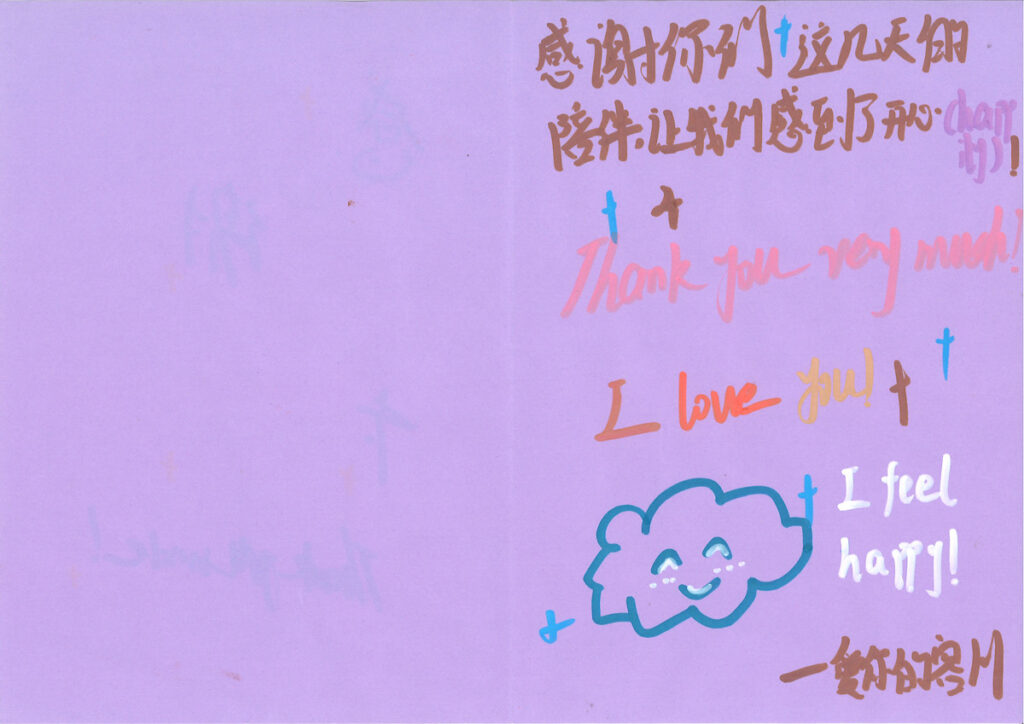 感谢你们这几天的
陪伴,让我们感到了开心(happ
ily)!
Thank you very much!
I love you!
I feel
happy!
一爱你的容川